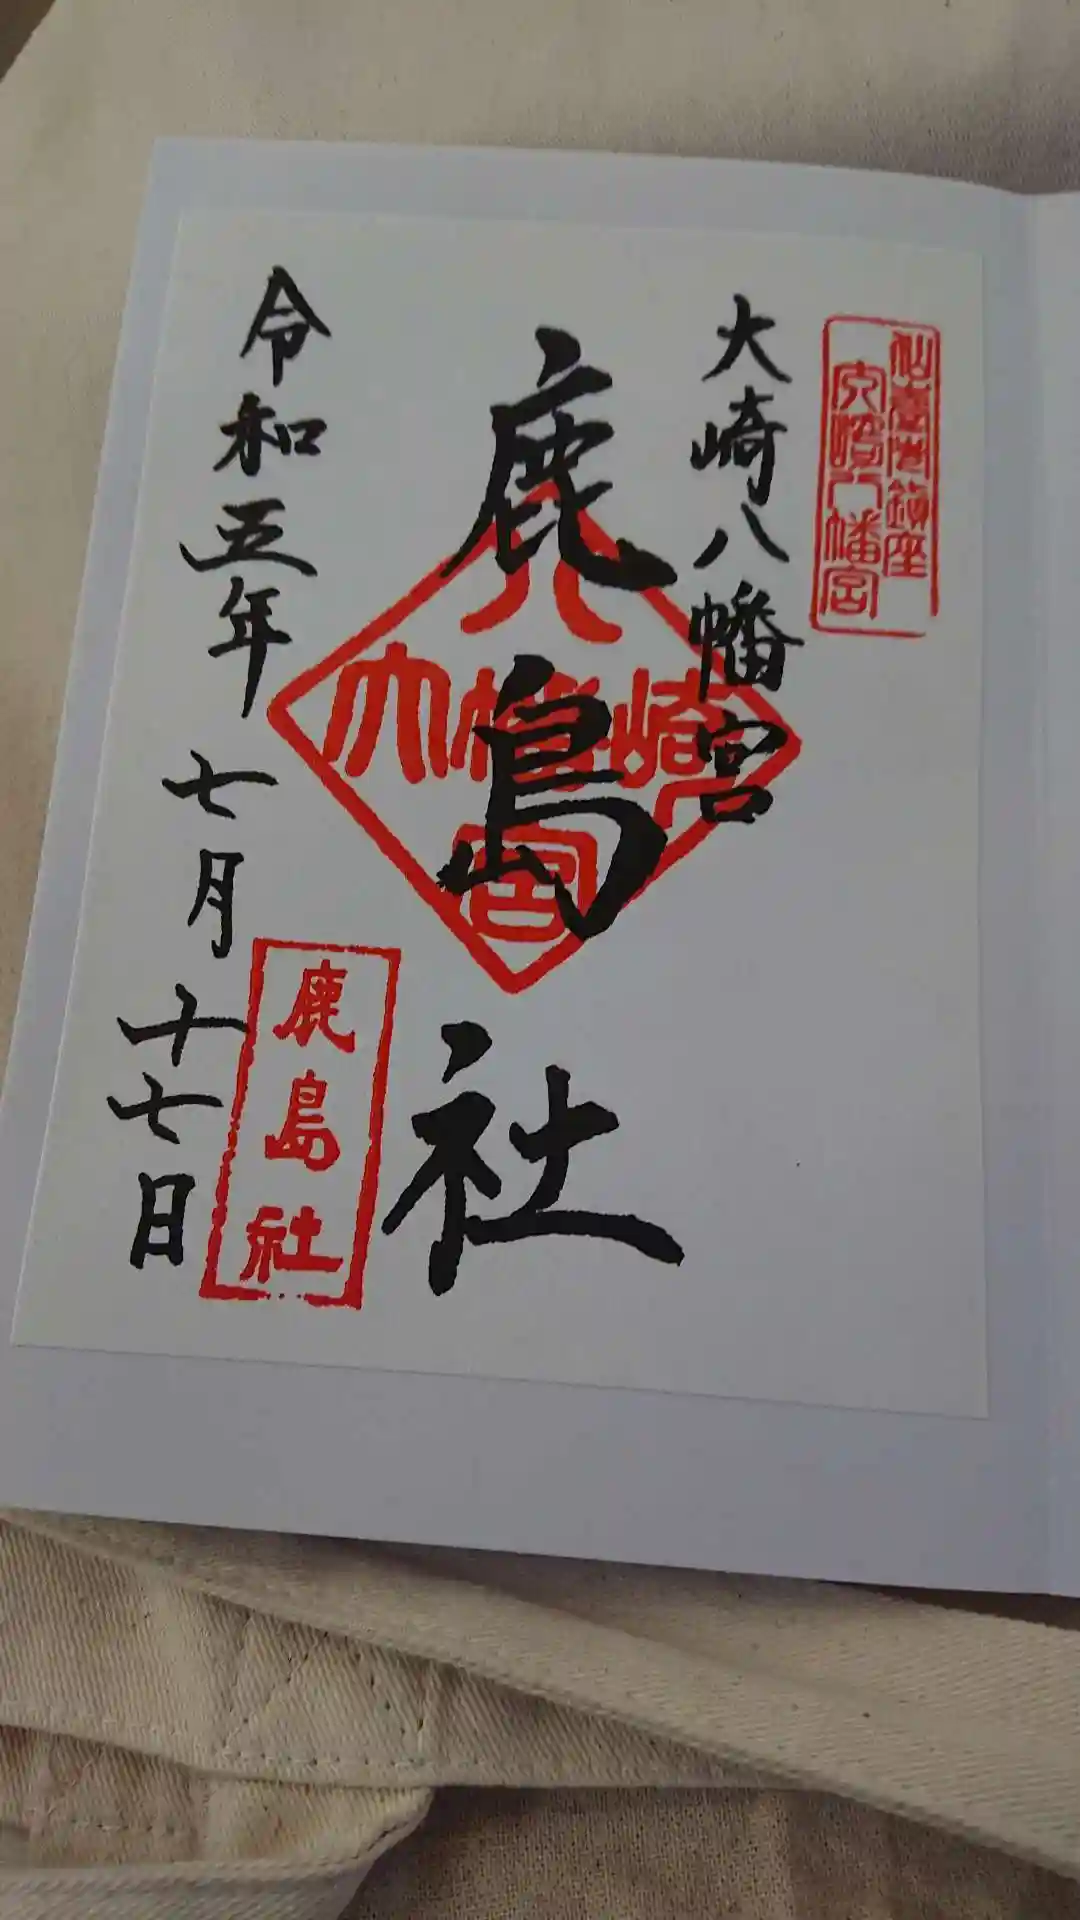 仙臺總鎮座
大崎八幡宮
大崎八幡宮
鹿島社
八
大幡崎
宮
鹿島社
令和五年七月十七日